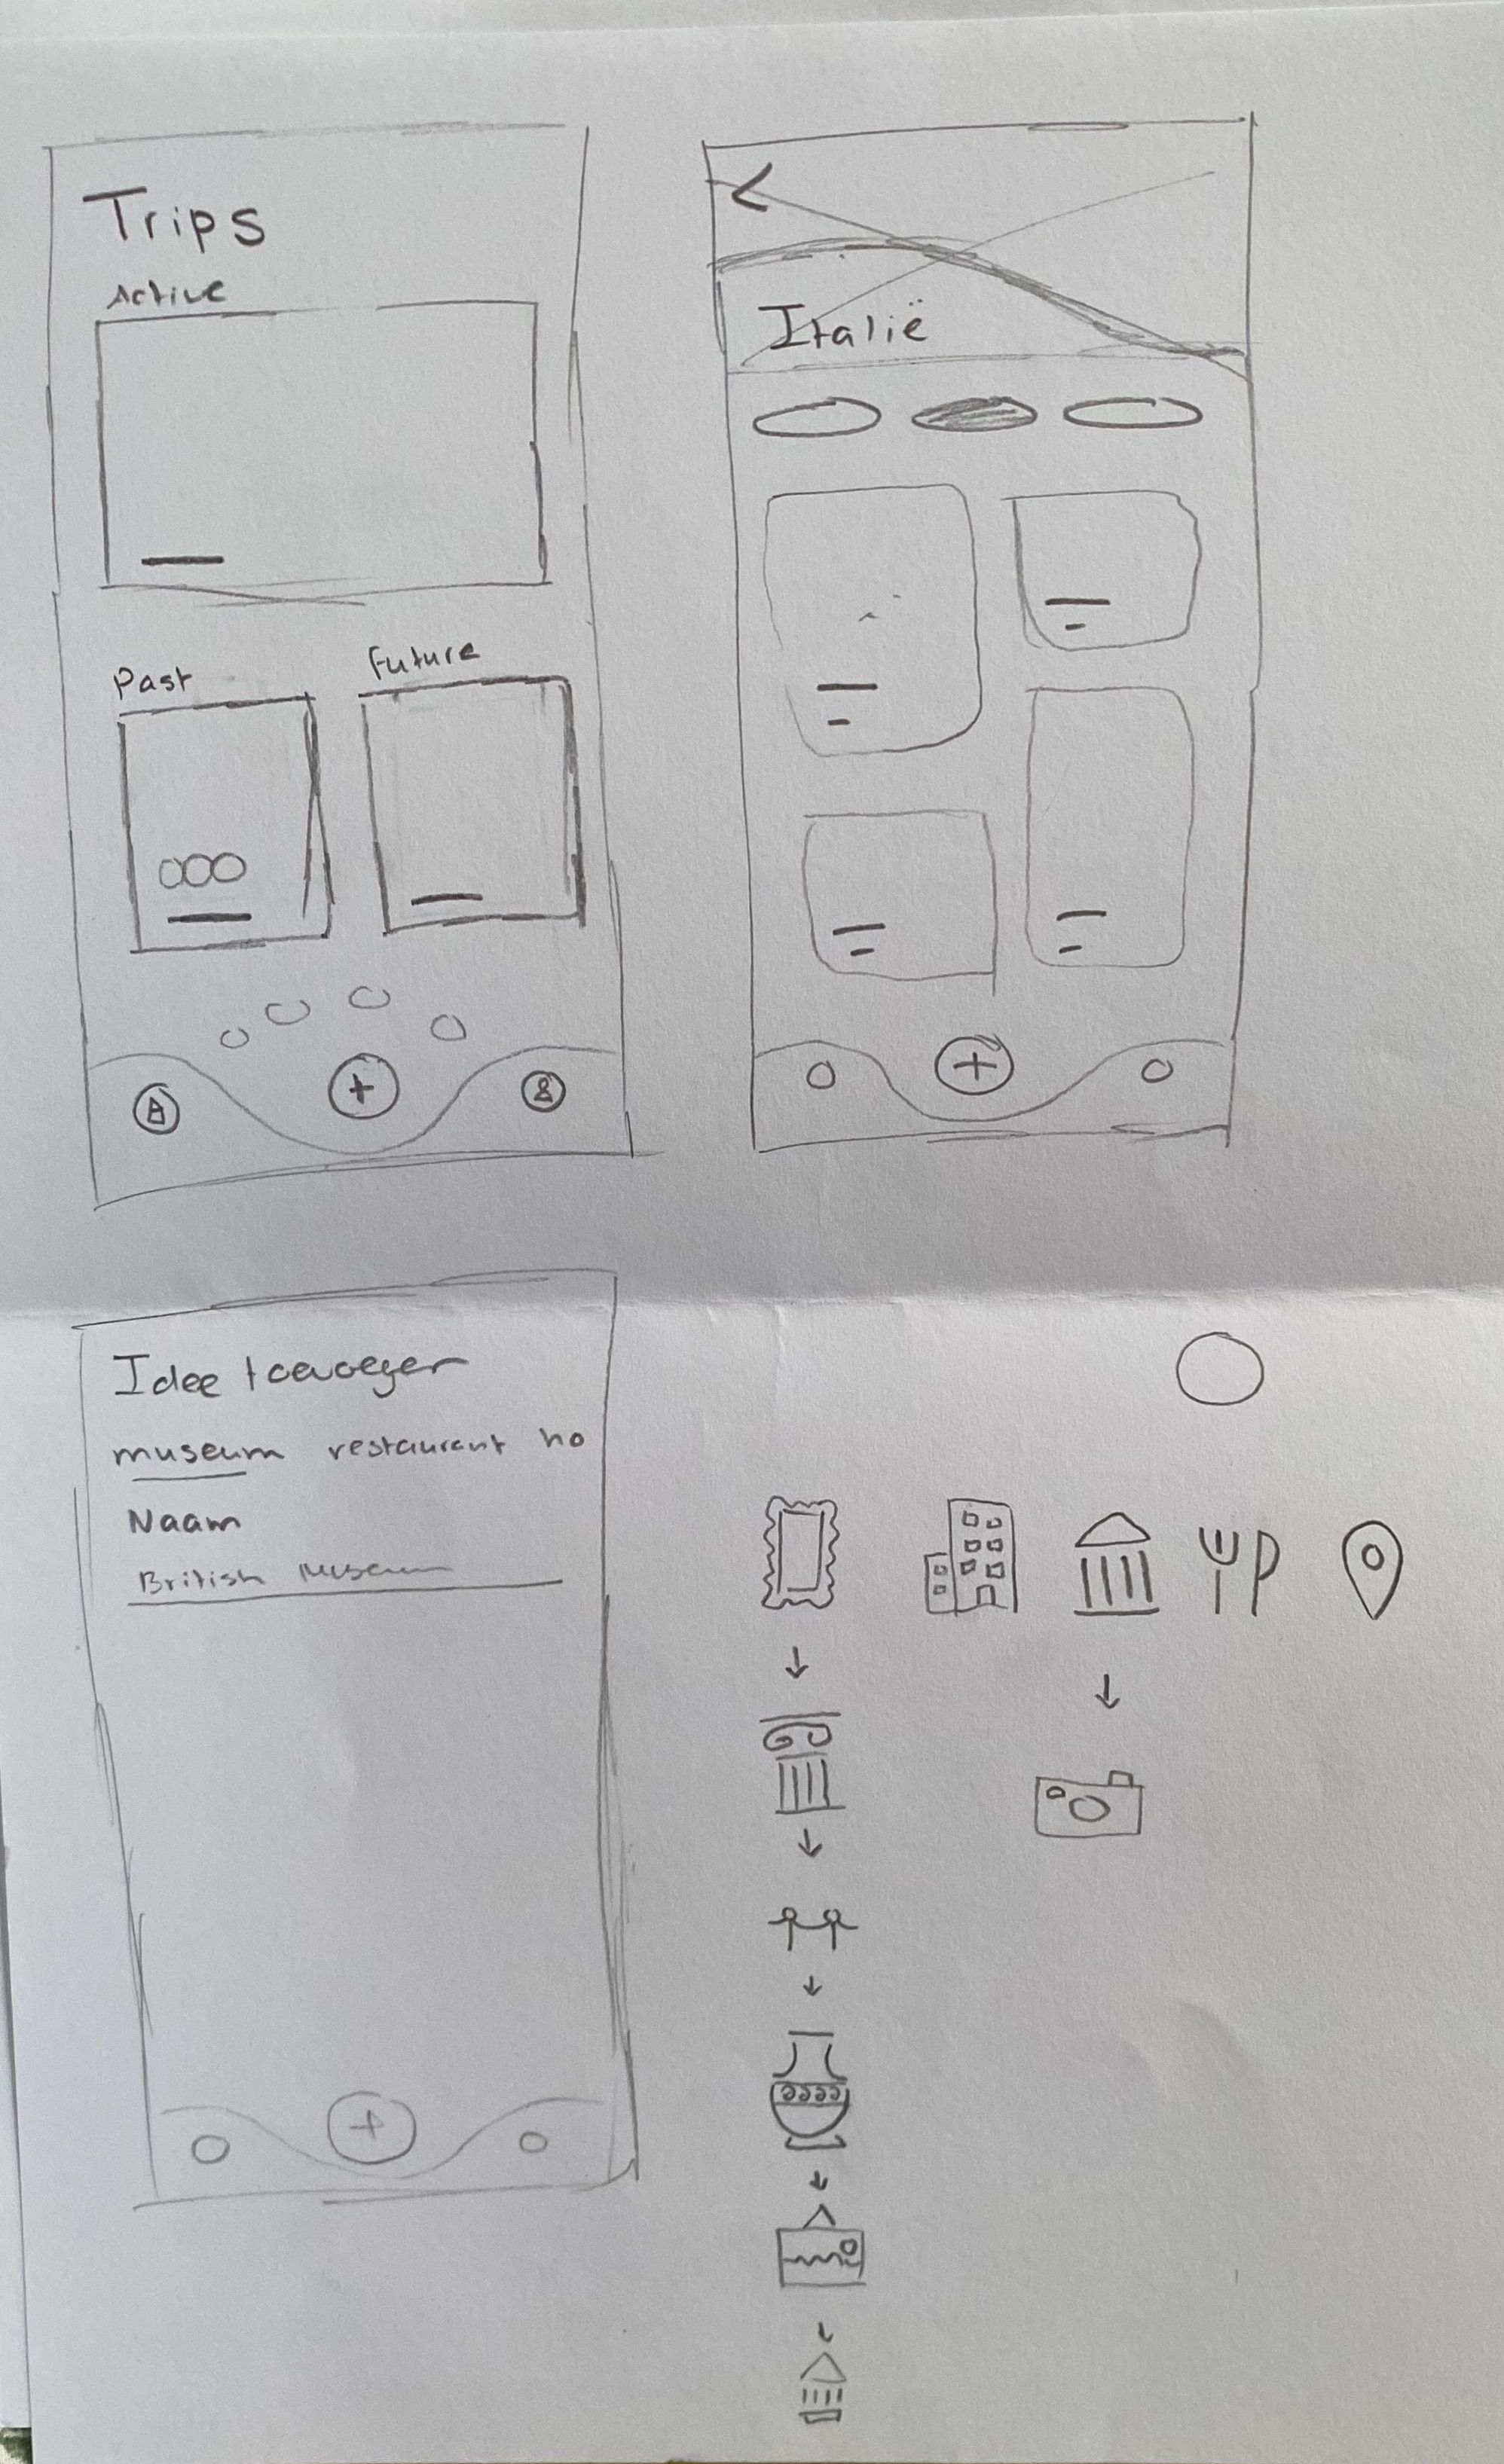 Trips
Active
Past
Future
Italië
Idee toevoegen
museum restaurant ho
Naam
British Museum